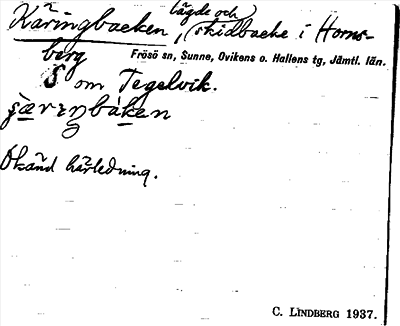 lägde och
Käringbacken, skidbacke i Horns-
berg Frösö sn, Sunne, Ovikens o. Hallens tg, Jämtl. län.
S om Tegelvik.
Okänd härledning.
C. LINDBERG 1937.